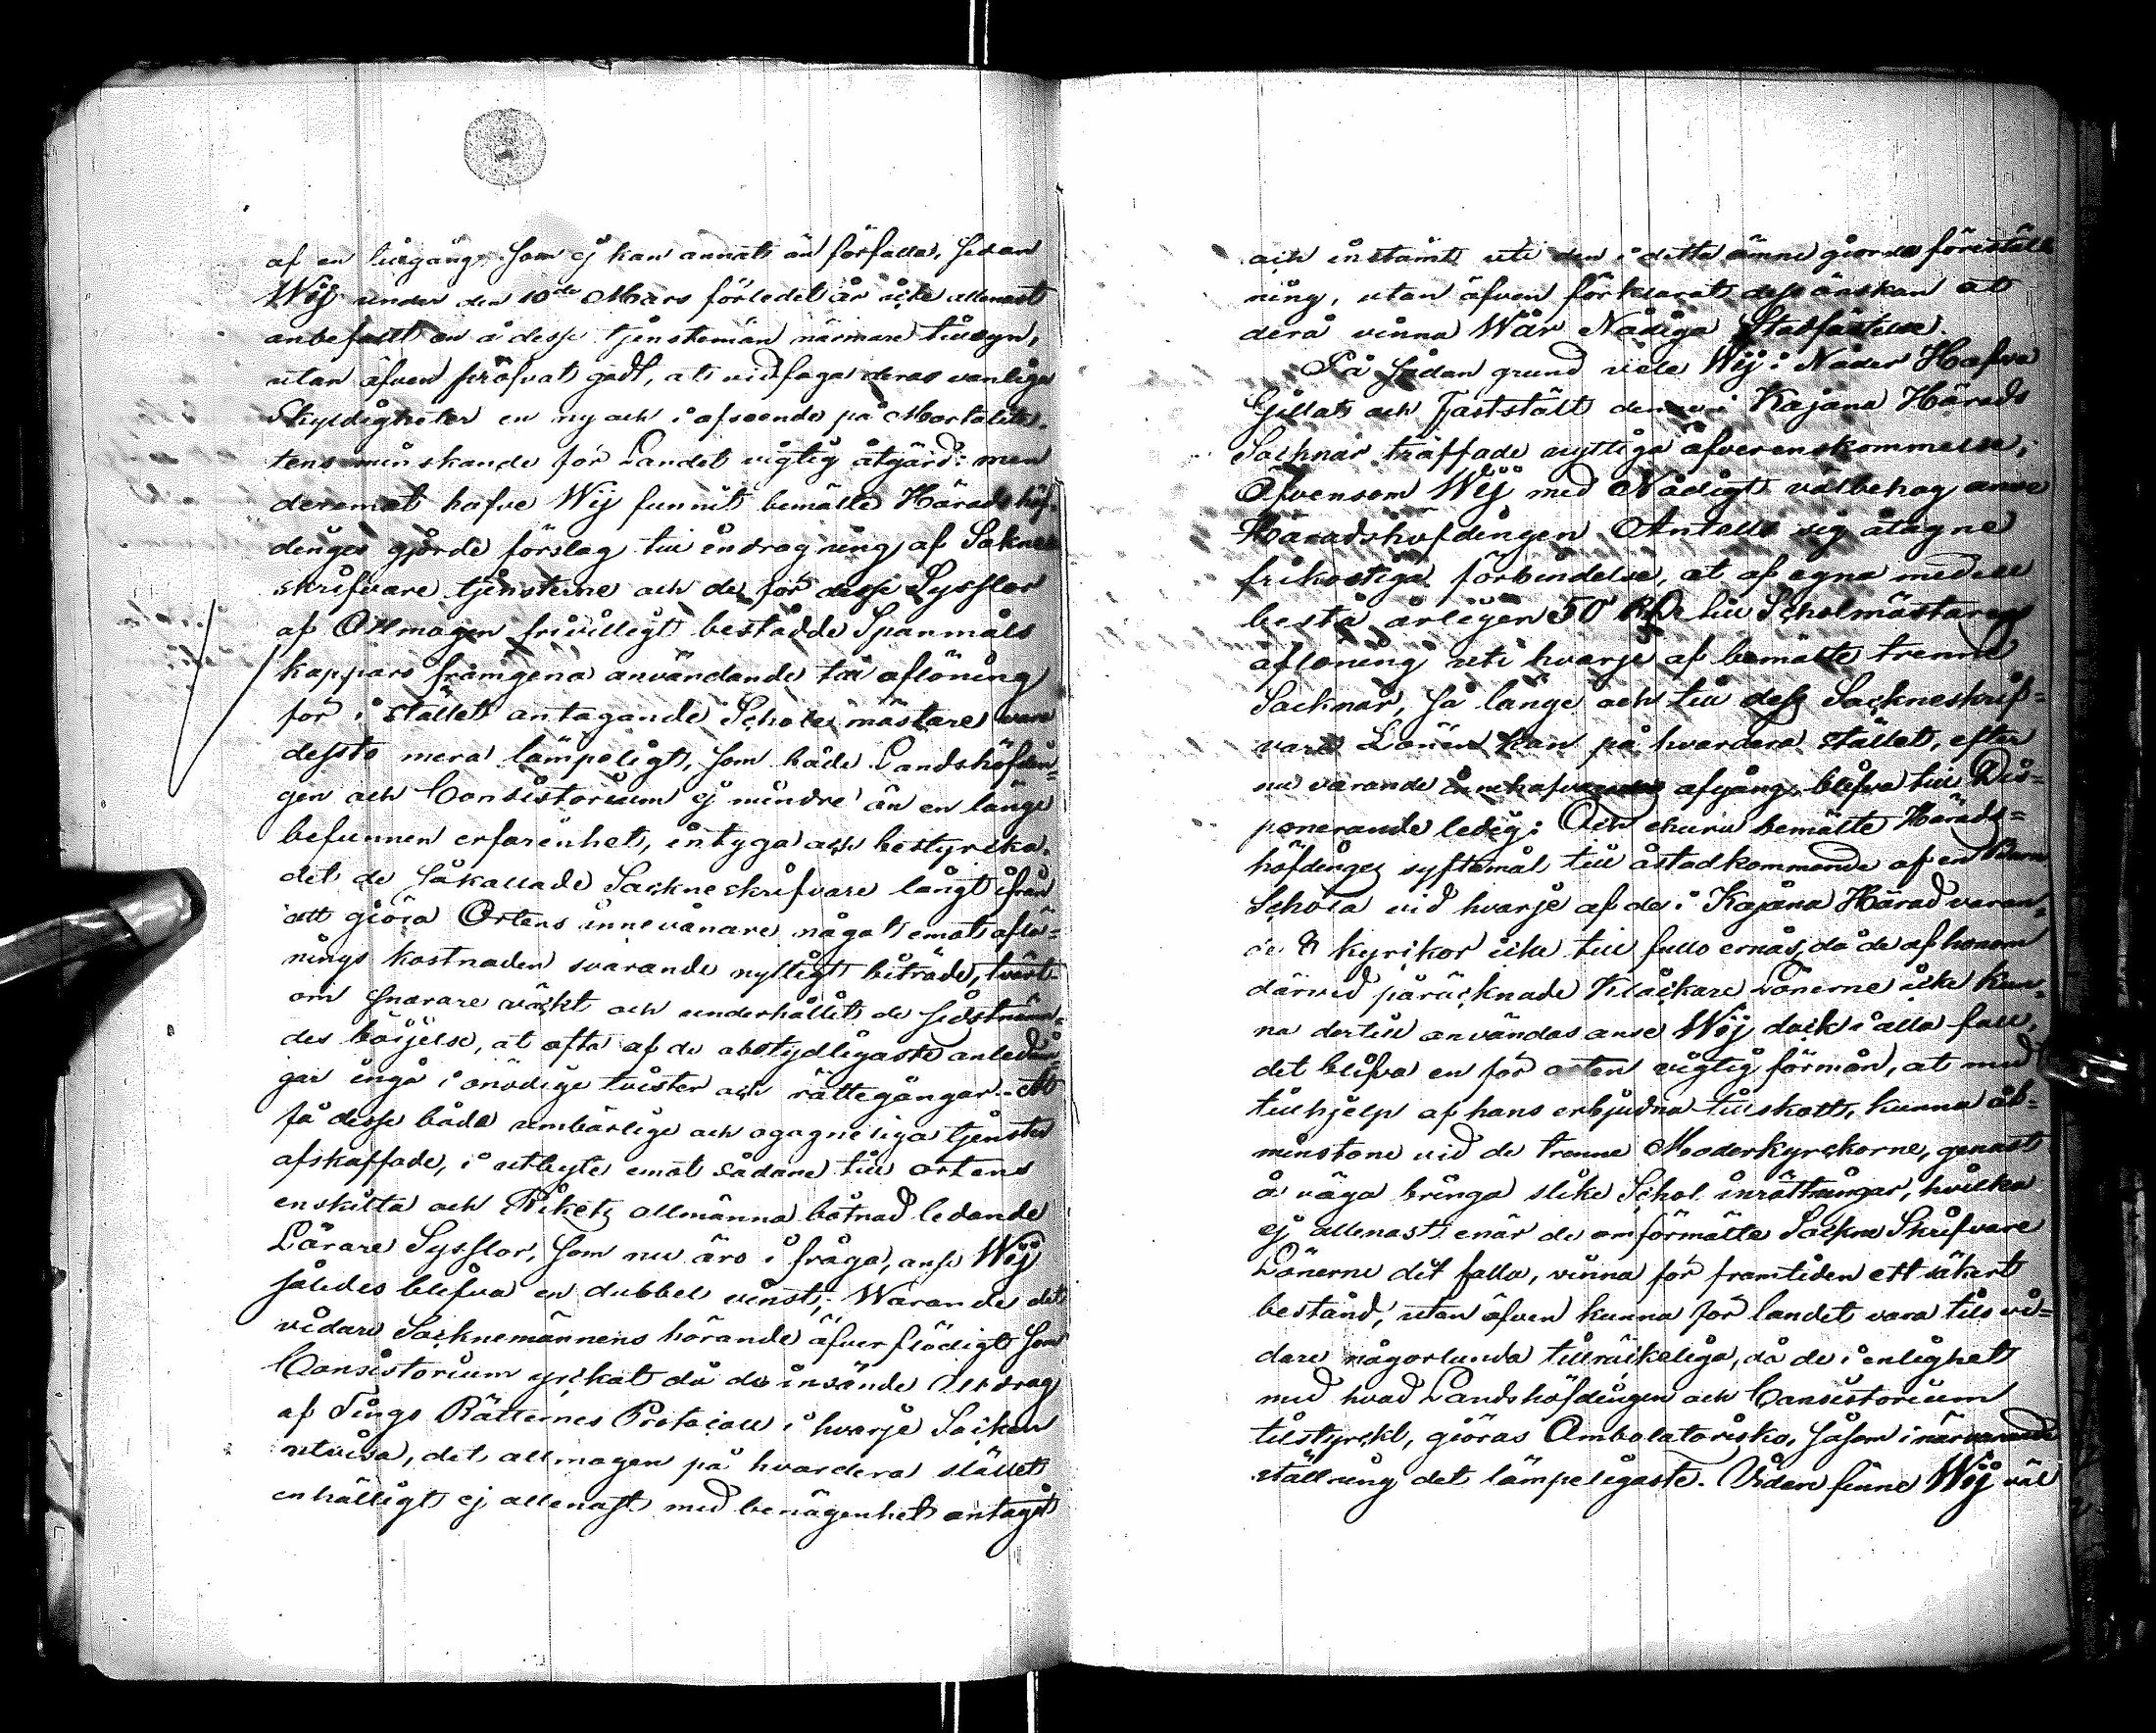 af en tilgång, som ej kan annat än förfalla, sedan
Wij under den 10de Mars förledet år icke allenast
anbefallt en å desse tjenstemän närmare tillsyn,
utan äfven pröfvat godt, at vidfoga deras vanlige
Skyldigheter en ny och i afseende på Mortalite-
tens minskande för Landet vigtig åtgärd: men
deremot hafve Wij funnit bemälte Häradshöf-
dinges gjorde förslag till indragning af Sokne
skrifvare tjensterne och de för desse Sysslor
af Allmogen frivilligt bestådde Spanmåls
kappars framgena användande till aflöning
för i stället antagande Schole mästare vara
dessto mera lämpeligt, som både Landshöfdin-
gen och Consistorium ej mindre än en länge
befunnen erfarenhet, intyga och bestyrcka,
det de såkallade Sockne skrifvare långt ifrån
att giöra Ortens innevånare något emot aflö-
nings kostnaden svarande nyttigt biträde, tvärt
om snarare väckt och underhållit de sidstnäm-
des böijelse, at ofta af de obetydligaste anlednin-
gar ingå i onödige tvister och rättegångar. At
få desse både umbärlige och ogagneliga tjenster
afskaffade, i utbyte emot sådane till ortens
enskilta och Rikets allmänna båtnad ledande
Lärare Sysslor, som nu äro i fråga, anse Wij
således blifva en dubbel vinst; Warande det
vidare Socknemännens hörande äfverflödigt som
Consistorium yrckat då de insände Utdrag
af Tings Rätternes Protocoll i hvarje Socken
utvisa, det allmogen på hvardera stället
enhälligt ej allenast med benägenhet antagit
och instämt uti den i detta ämne giorde föreställ
ning, utan äfven förklarat dess önskan at
derå vinna Wår Nådiga Stadfästelse.
På sådan grund vele Wij i Nåder Hafva
Gillat och Fastställt denne i Kajana Härads
Socknar träffade nyttiga äfverenskommelse;
Äfvensom Wij med Nådigt välbehag anse
Häradshöfdingen Antells sig åtagne
frikostiga förbindelse, at af egna medell
bestå årligen 50 RD till Scholmästarens
aflöning uti hvarje af bemälte trenne
Socknar, så länge och till dess Sockneskrif-
vare Lönen kan på hvardera stället, efter
nu varande innehafvarens afgång, blifva till Dis-
ponerande ledig: Och ehuru bemälte Härads-
höfdinges syftemål till åstadkommande af en Barn
Schola vid hvarje af de i Kajana Härad varan-
de 8 kyrckor icke till fullo ernås, då de af honom
därvid påräcknade Klåckare Lönerne icke kun-
na dertill användas anse Wij dock i alla fall,
det blifva en för orten vigtig förmån, at med
tillhjelp af hans erbjudna tillskott, kunna åt-
minstone vid de trenne Moderkyrckorne, genast
å väga bringa slike Schol inrättningar, hvilka
ej allenast enär de omförmälte Sockne Skrifvare
Lönerne dit falla, vinna för framtiden ett säkert
bestånd, utan äfven kunna för landet vara tils vi-
dare någorlunda tillräckeliga, då de i enlighet
med hvad Landshöfdingen och Consistorium
tilstyrckt, giöras Ambolatoriska, såsom i närvarande
ställning det lämpeligaste. Vidare finne Wij väl